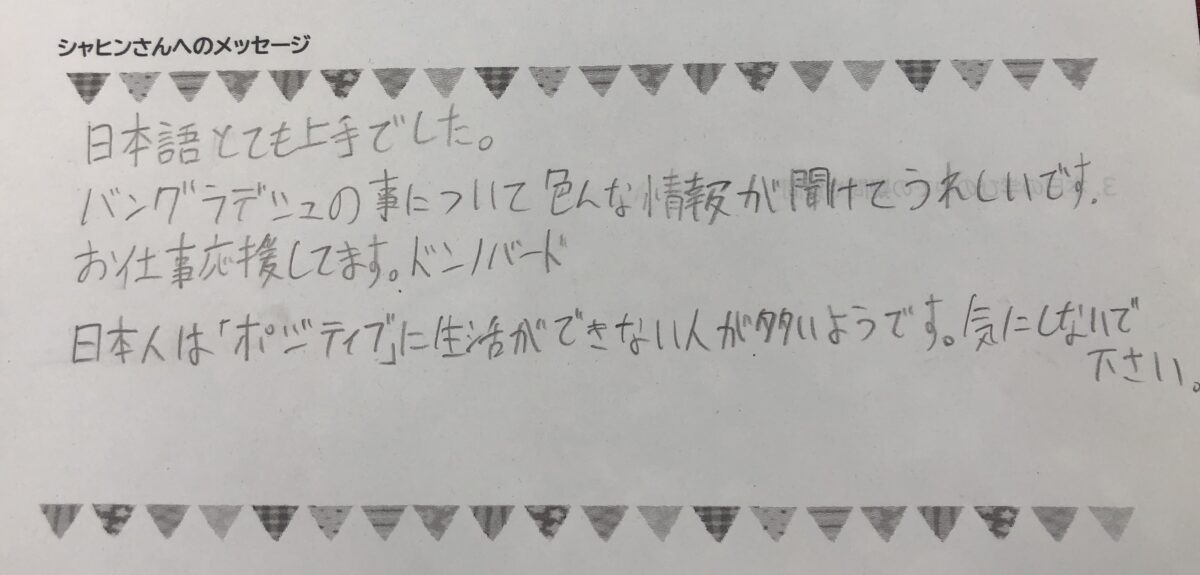 シャヒンさんへのメッセージ
日本語とても上手でした。
バングラデシュの事について色んな情報が聞けてうれしいです.
お仕事応援してます。ドンノバード
日本人は「ポジティブ」に生活ができない人が多いようです。気にしないで
下さい。